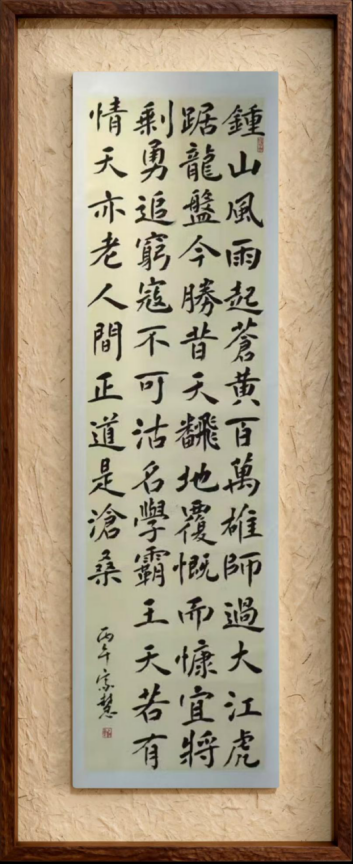 鍾山風雨起蒼黃百萬雄師過大江虎
踞龍盤今勝昔天飜地覆慨而慷宜將
剩勇追窮寇不可沽名學霸王天若有
情天亦老人間正道是滄桑
丙午